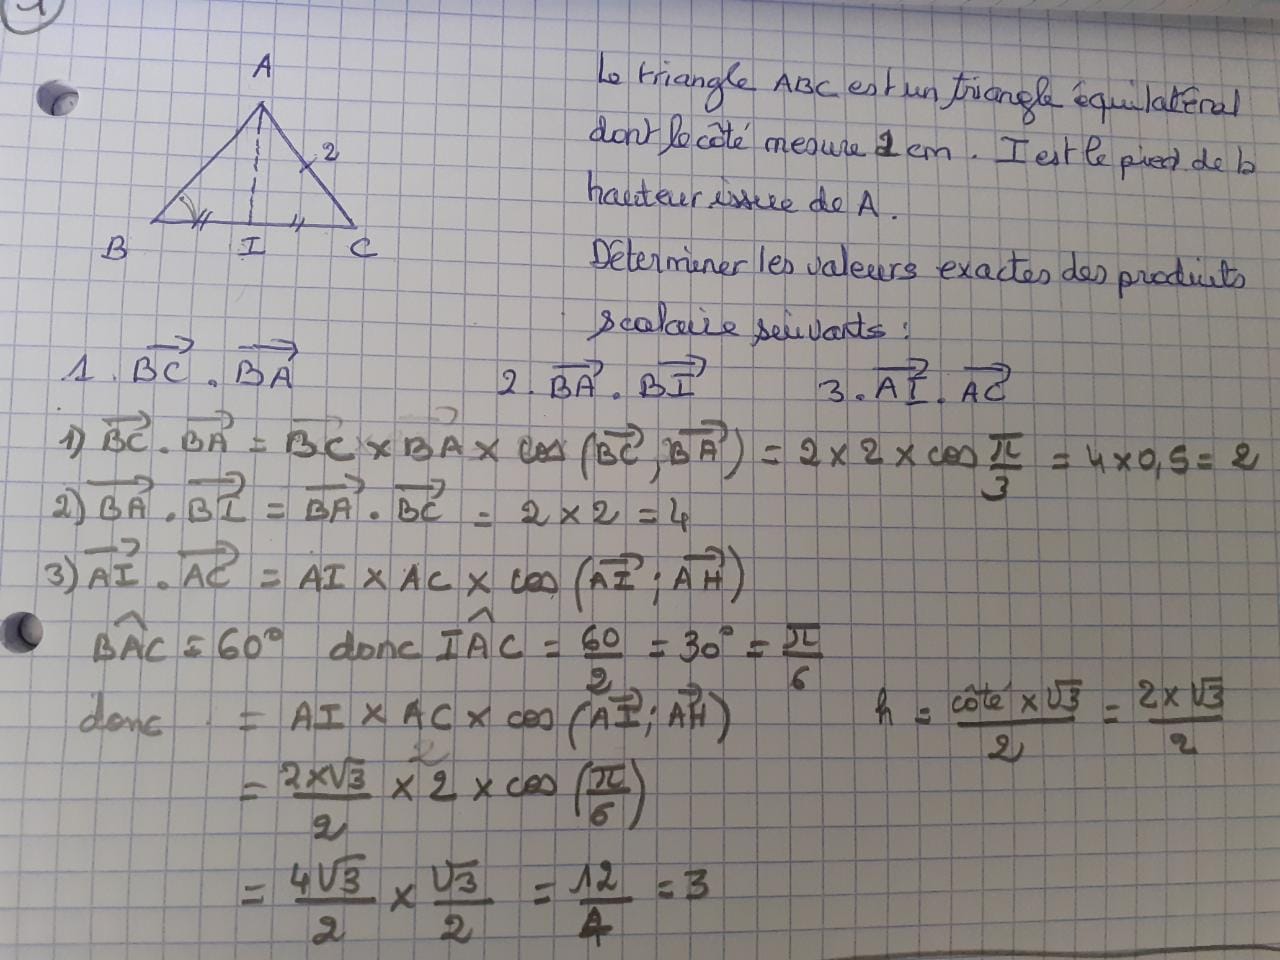 1
A
2
B I C
Le triangle ABC est un triangle équilatéral
dont le côté mesure 2 cm. I est le pied de la
hauteur issue de A.
Déterminer les valeurs exactes des produits
scalaire suivants :
1. \overrightarrow{BC} . \overrightarrow{BA} 2. \overrightarrow{BA} . \overrightarrow{BI} 3. \overrightarrow{AI} . \overrightarrow{AC}
1) \overrightarrow{BC} . \overrightarrow{BA} = \overrightarrow{BC} × \overrightarrow{BA} × cos (\overrightarrow{BC} ; \overrightarrow{BA}) = 2 × 2 × cos \frac{π}{3} = 4 × 0,5 = 2
2) \overrightarrow{BA} . \overrightarrow{BI} = \overrightarrow{BA} . \overrightarrow{BC} = 2 × 2 = 4
3) \overrightarrow{AI} . \overrightarrow{AC} = AI × AC × cos (\overrightarrow{AI} ; \overrightarrow{AH})
\widehat{BAC} = 60° donc \widehat{IAC} = \frac{60}{2} = 30° = \frac{π}{6}
donc = AI × AC × cos (\overrightarrow{AI} ; \overrightarrow{AH}) h = \frac{côté × √3}{2} = \frac{2 × √3}{2}
= \frac{2×√3}{2} × 2 × cos (\frac{π}{6})
= \frac{4√3}{2} × \frac{√3}{2} = \frac{12}{4} = 3